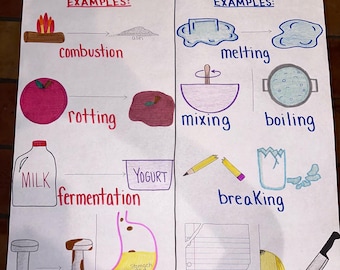 EXAMPLES: EXAMPLES:
combustion melting
rotting mixing boiling
MILK YOGURT
fermentation breaking